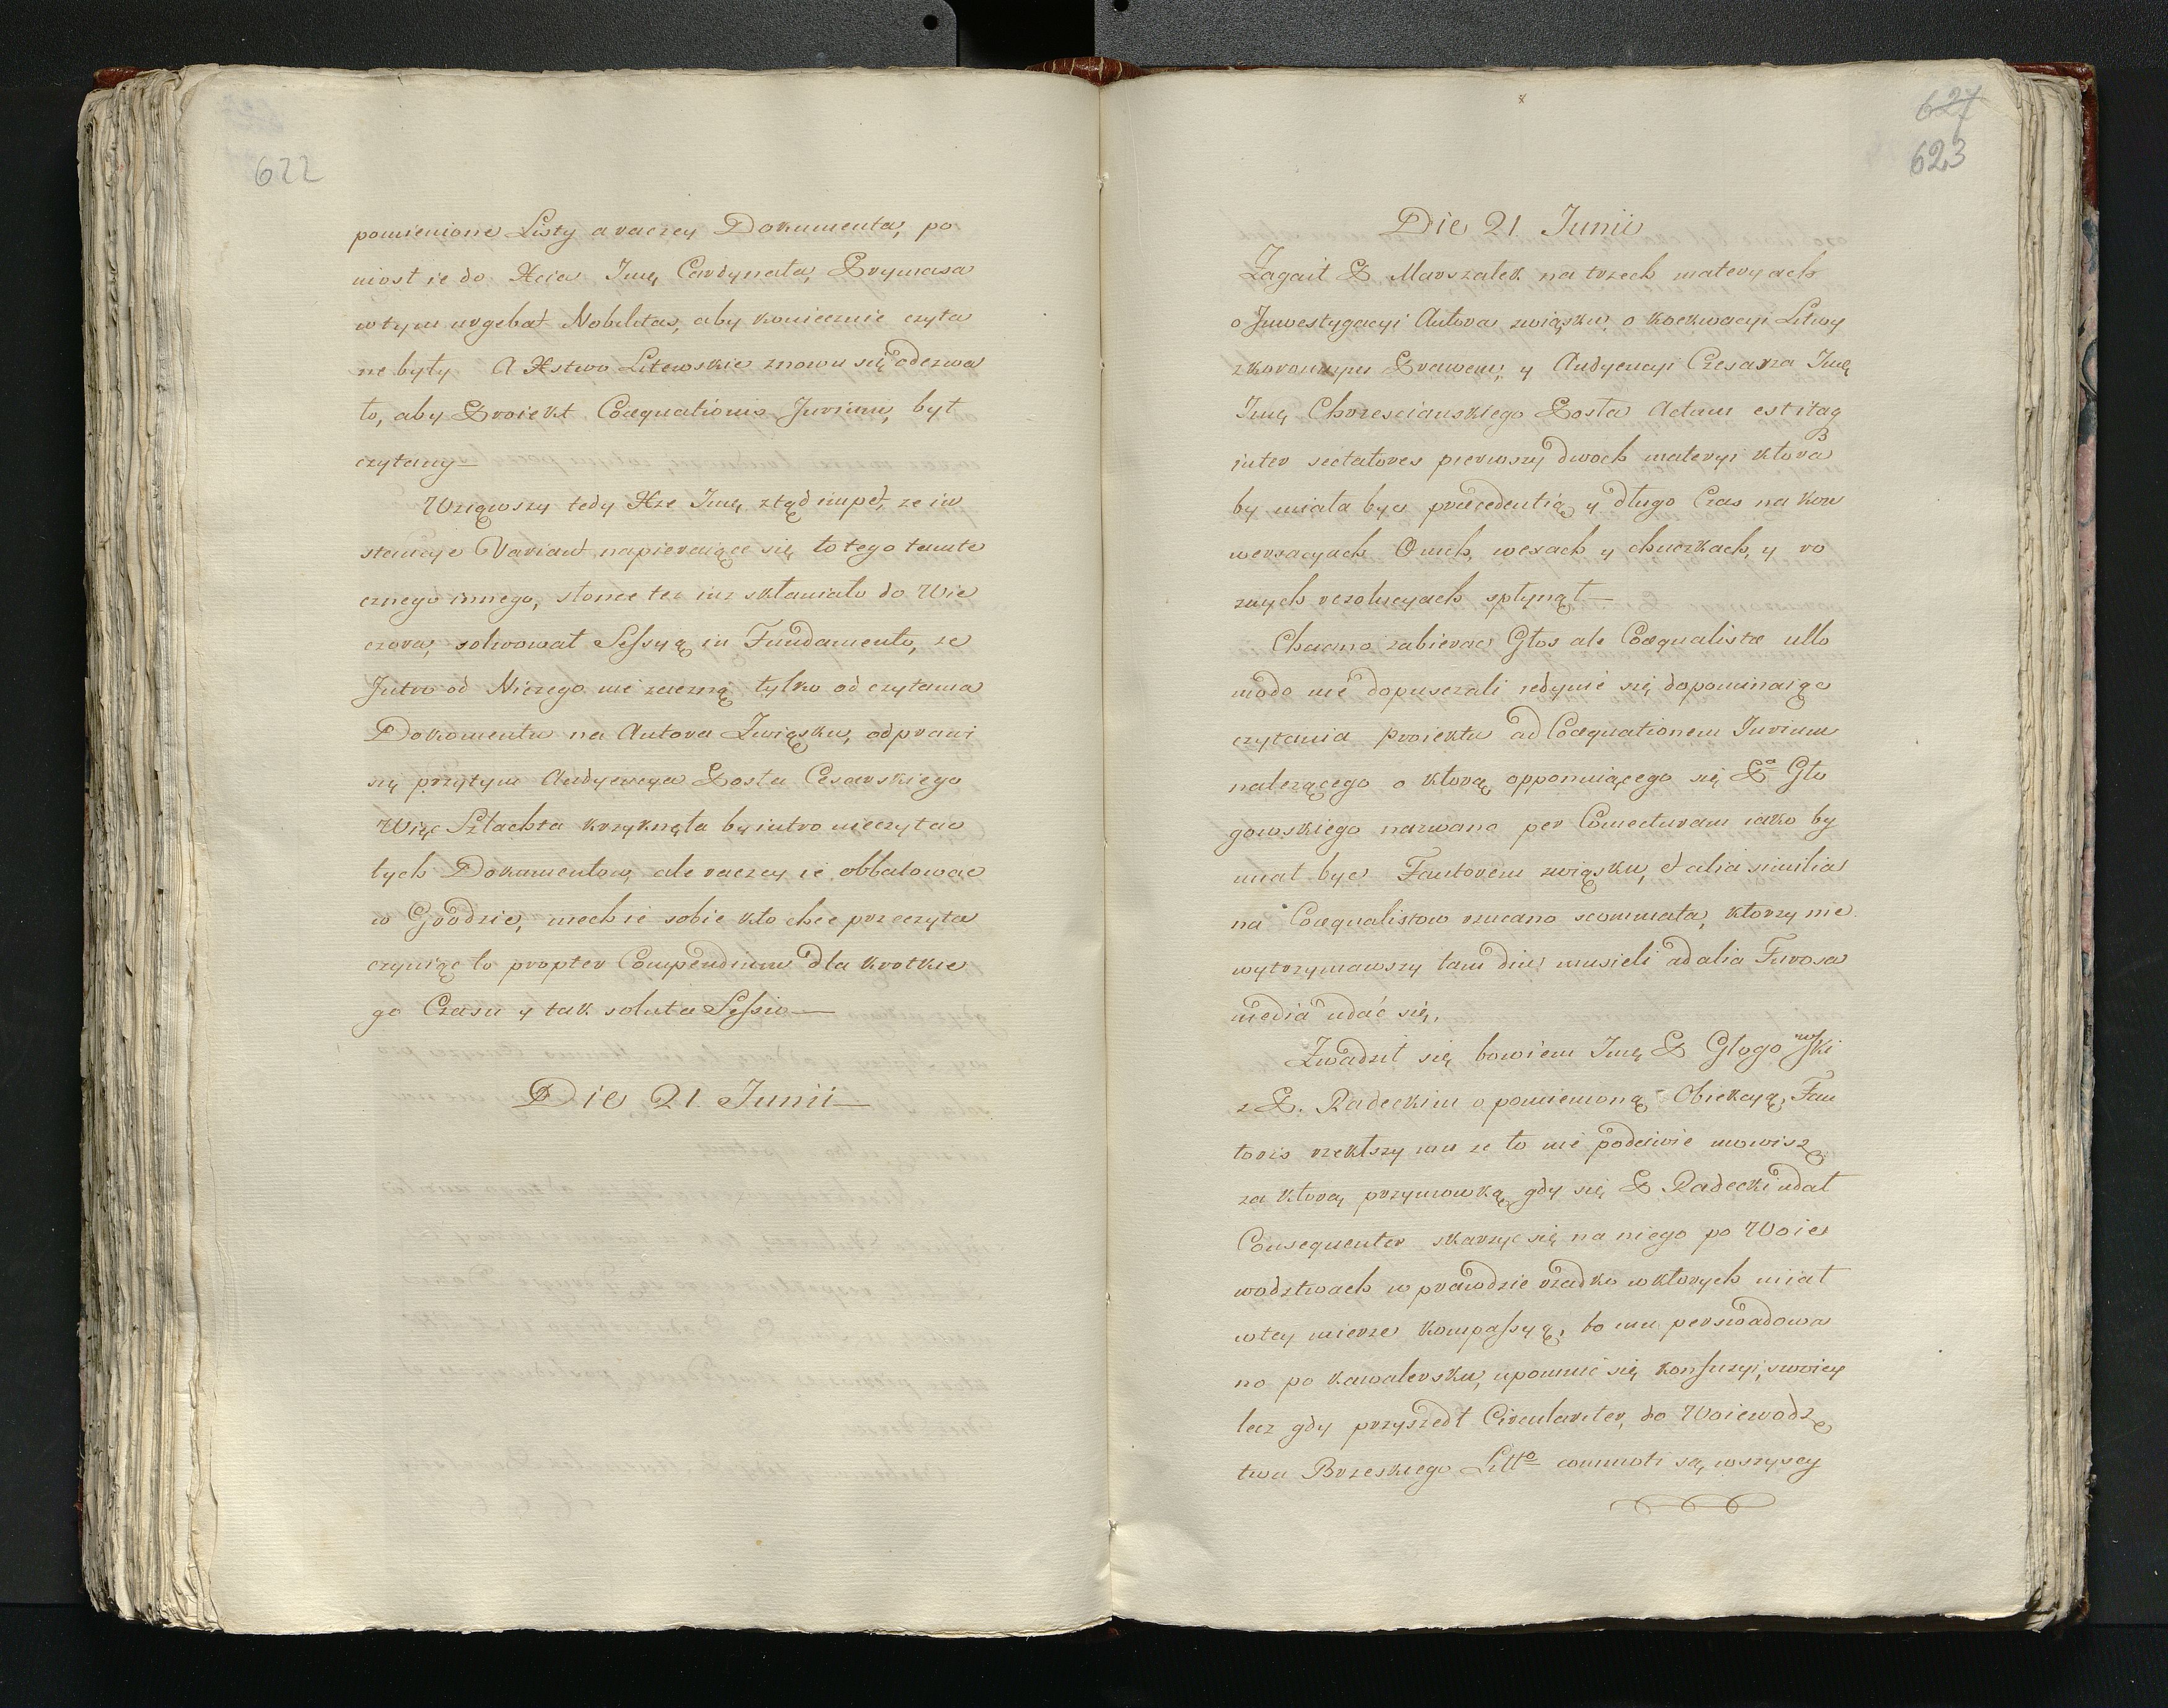 622
pomienione Listy a raczey Dokumenta, po
niosł ie do Xcia Imę Cardynała, Prymasa
w tym urgebat Nobilitas, aby koniecznie czyta
ne były A Xstwo Litewskie znowu się odezwa
ło, aby Proiekt Coæquationis Jurium, był
czytany—
Wziąwszy tedy Xze Imę ztąd impet, ze in
stancye Variant napieraiące się to tego tamte
cznego innego, słonce tez iuz skłaniało do Wie
czora, solwował Sessyą in Fundamento, ze
Jutro od Niczego nie zaczną tylko od czytania
Dokumentu na Autora Związku, odprawi
się przytym Audyencya Posła Cesarskiego
Więc Szlachta krzyknęła by iutro nieczytac
tych Dokumentow, ale raczey ie obbatowac
w Grodzie, niech ie sobie kto chce przeczyta
czyniąc to propter Compendium dla krotkie
go Czasu y tak soluta Sessio—
Die 21 Junii—
627
623
Die 21 Junii
Zagaił P. Marszałek na trzech materyach
o Inwestygacyi Autora związku, o koekwacyi Litwy
z koronnym Prawem, y Audyencyi Czesarza Imę
Imę Chrzescianskiego Posła Actum est itaq
inter sectatores pierwszy dwoch materyi ktora
3
by miała byc præcedentią y długo Czas na kon
wersacyach Onich, wexach y chuczkach, y ro
znych rezolucyach spłynął—
Chciano zabierac Głos ale Coæqualistæ ullo
modo nie dopuszczali iedynie się dopominaiąc
czytania proiektu ad Coæquationem Jurium
nalezącego o ktorą opponuiącego się Pa Gło
gowskiego nazwano per Coniecturam iako by
miał byc Fautorem związku, et alia similia
na Coæqualistow rzucano scommata, ktorzy nie
wytrzymawszy tam diu musieli ad alia Furosa
media udać się.
Zwadził się bowiem Imę P Głogowski
z P. Radeckim o pomienioną Obiekcyą, Fau
toris rzekłszy mu ze to nie podciwie mowisz
za ktorą przymowką gdy się P Radecki udał
Consequenter skarzyc się na niego po Woie
wodztwach w prawdzie rzadko w ktorych miał
w tey mierze kompassyą, bo mu perswadowa
no po kawalersku, upomnic się konfuzyi swoiey
lecz gdy przyszedł Circulariter, do Woiewodz
twa Brzeskiego Litto commoti są, wszyscy